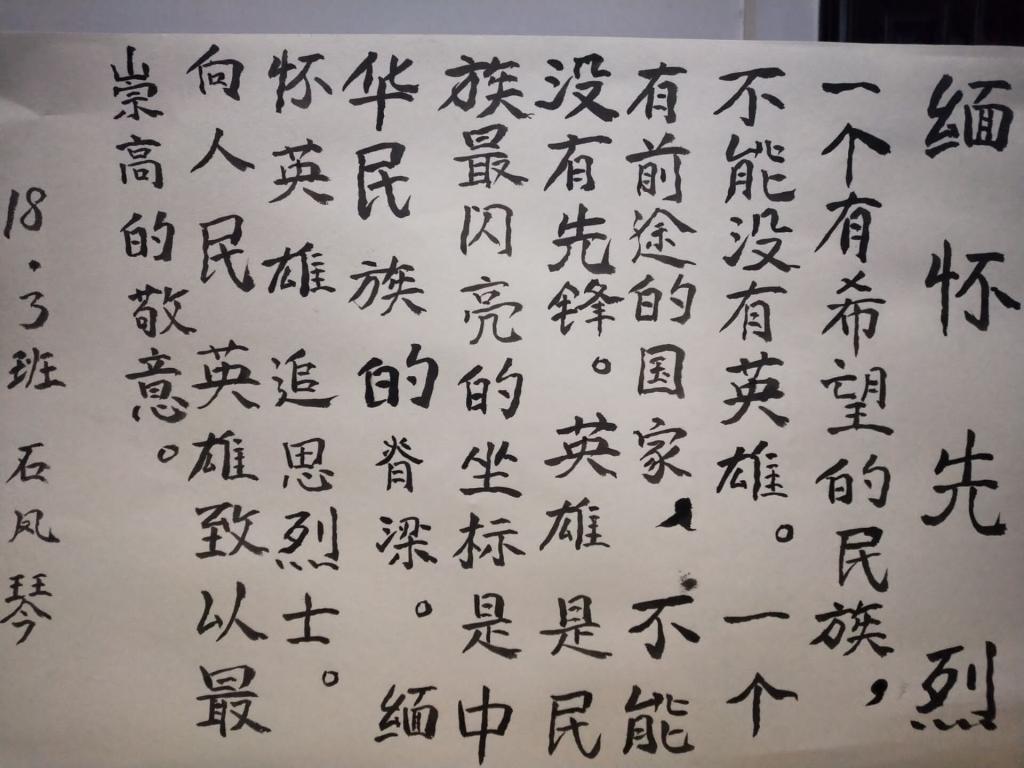 缅怀先烈
一个有希望的民族，
不能没有英雄。一个
有前途的国家、不能
没有先锋。英雄是民
族最闪亮的坐标是中
华民族的脊梁。缅
怀英雄追思烈士。
向人民英雄致以最
崇高的敬意。
18.3班石凤琴